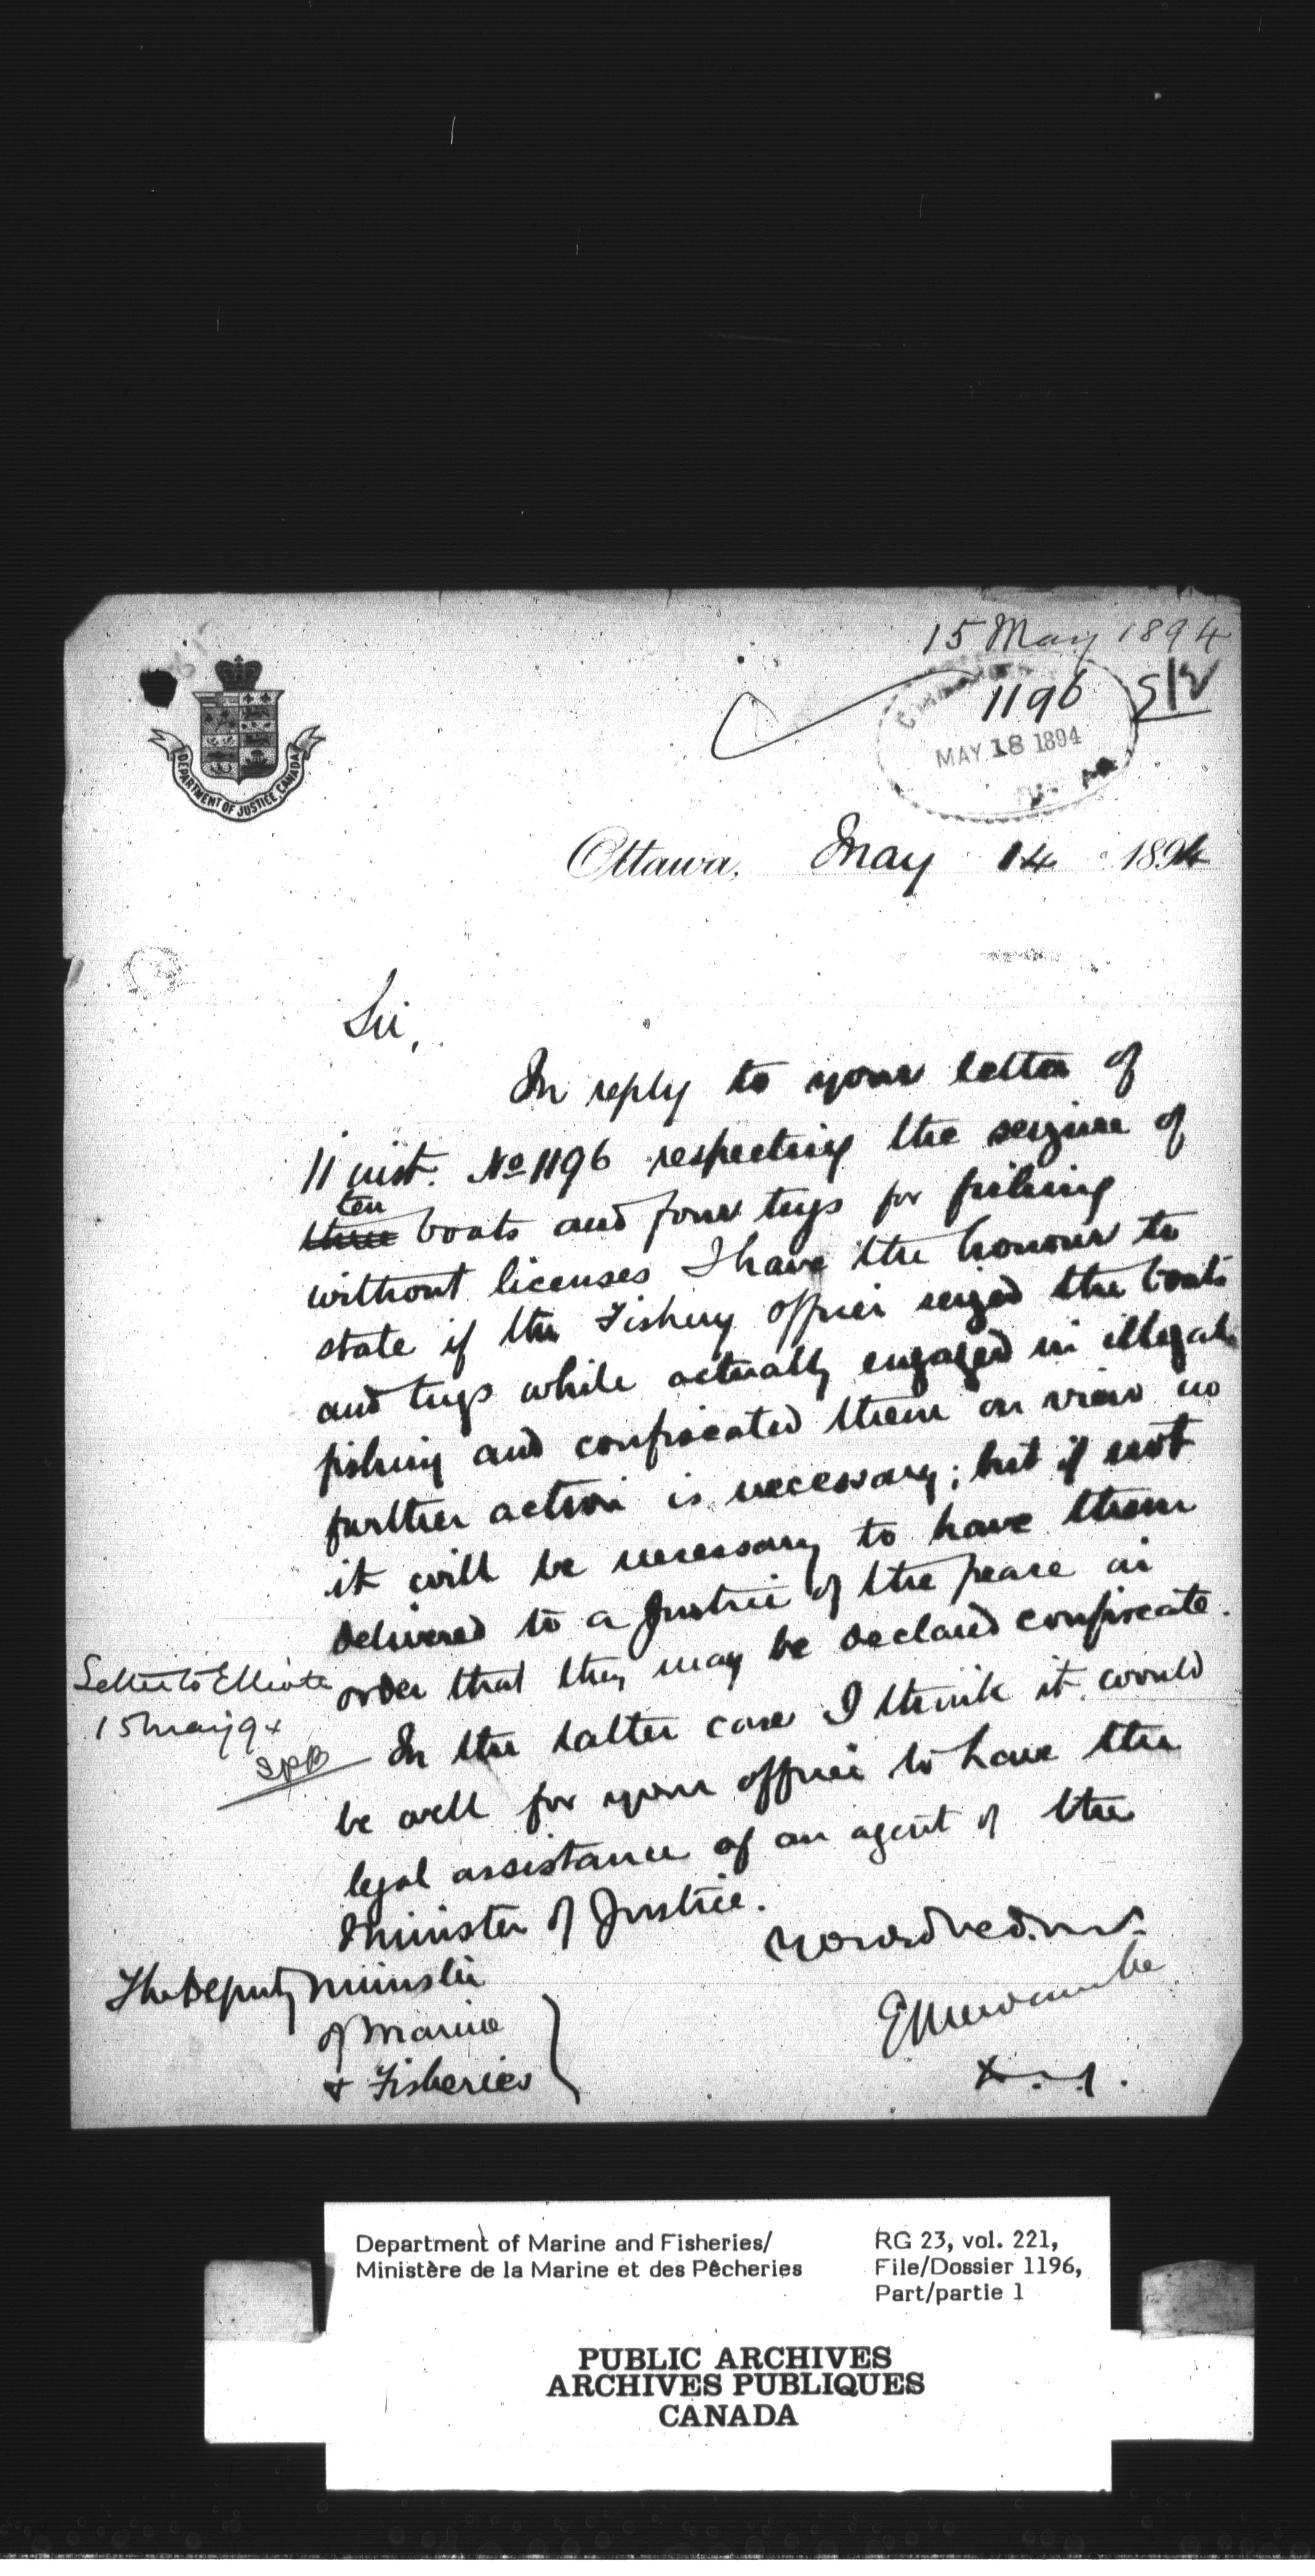 15 May 1894
1196
MAY 18 1894
DEPARTMENT OF JUSTICE, CANADA
Ottawa, May 14 1894
Sir,
In reply to your letter of
11 inst. No 1196 respecting the seizure of
ten
three boats and four tugs for fishing
without licenses I have the honour to
state if the Fishery officer seized the boats
and tugs while actually engaged in illegal
fishing and confiscated them on view no
further action is necessary; but if not
it will be necessary to have them
delivered to a Justice of the peace in
order that they may be declared confiscate.
Letter to Elliott
15 May 94
In the latter case I think it would
be well for your officer to have the
legal assistance of an agent of the
Minister of Justice.
The Deputy Minister
of Marine
& Fisheries
E Newcombe
Department of Marine and Fisheries/
Ministère de la Marine et des Pêcheries
RG 23, vol. 221,
File/Dossier 1196,
Part/partie 1
PUBLIC ARCHIVES
ARCHIVES PUBLIQUES
CANADA